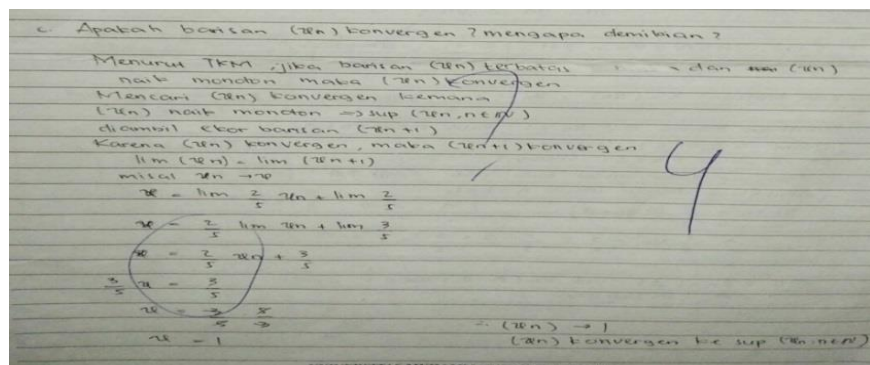 c. Apakah barisan (xn) konvergen? mengapa demikian?
Menurut TKM, jika barisan (xn) terbatas dan (xn)
naik monoton maka (xn) konvergen
Mencari (xn) konvergen kemana
(xn) naik monoton → sup (xn, n∈N)
diambil ekor barisan (xn+1)
Karena (xn) konvergen, maka (xn+1) konvergen
lim (xn) = lim (xn+1)
misal xn → x
x = lim 2/5 xn + lim 2/5
x = 2/5 lim xn + lim 3/5
x = 2/5 xn + 3/5
3/5 x = 3/5
x = 3/5 5/3
x = 1
∴ (xn) → 1
(xn) konvergen ke sup (xn : n∈N)
4